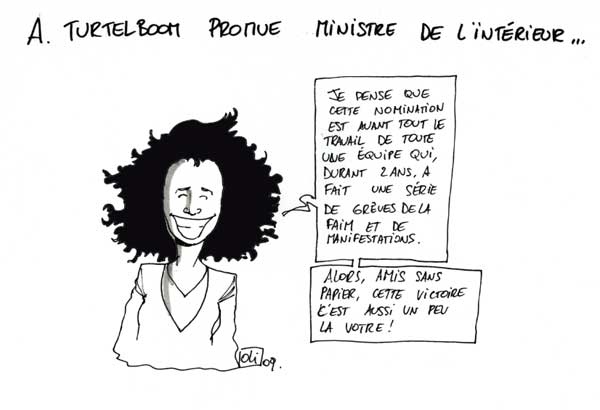 A. TURTELBOOM PROMUE MINISTRE DE L'INTÉRIEUR...
JE PENSE QUE
CETTE NOMINATION
EST AVANT TOUT LE
TRAVAIL DE TOUTE
UNE ÉQUIPE QUI,
DURANT 2 ANS, A
FAIT UNE SÉRIE
DE GRÈVES DE LA
FAIM ET DE
MANIFESTATIONS.
ALORS, AMIS SANS
PAPIER, CETTE VICTOIRE
C'EST AUSSI UN PEU
LA VOTRE !
OLI 09.